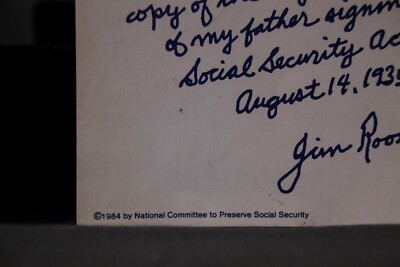 copy of
of my father
Social Security
August 14, 193
Jim
©1984 by National Committee to Preserve Social Security